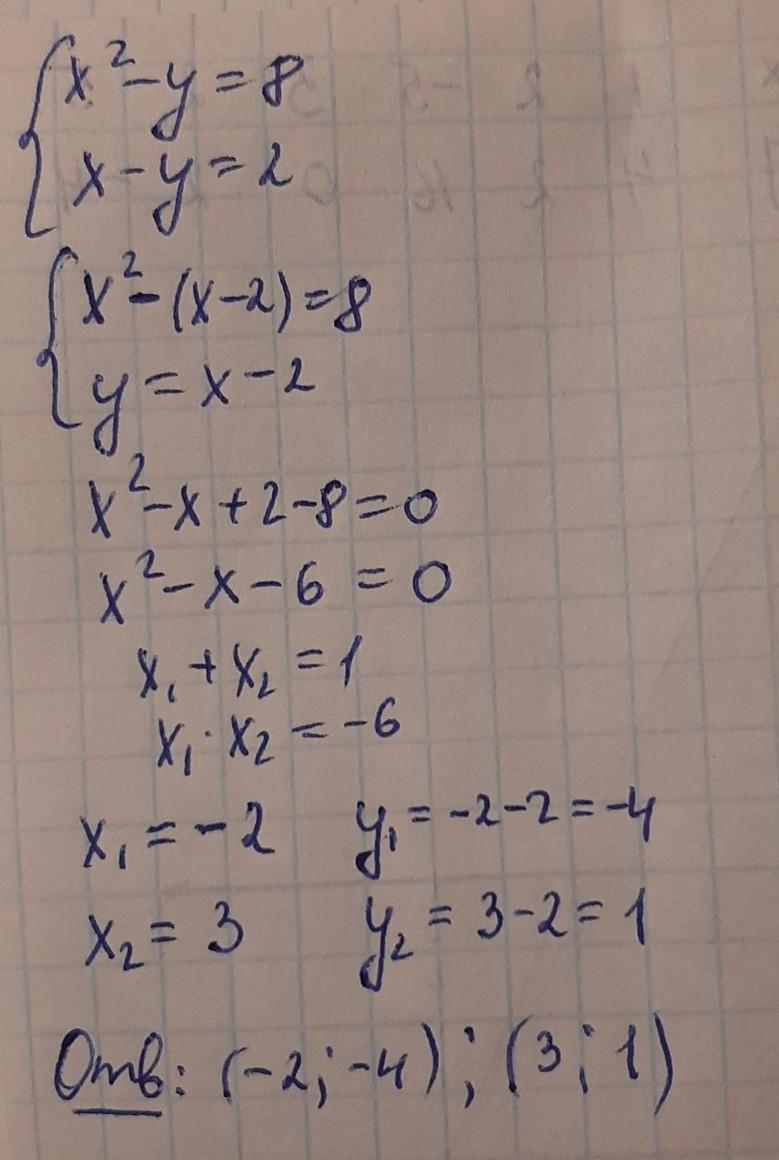 x² - y = 8
x - y = 2
x² - (x - 2) = 8
y = x - 2
x² - x + 2 - 8 = 0
x² - x - 6 = 0
x₁ + x₂ = 1
x₁ · x₂ = -6
x₁ = -2 y₁ = -2 - 2 = -4
x₂ = 3 y₂ = 3 - 2 = 1
Отв: (-2; -4); (3; 1)